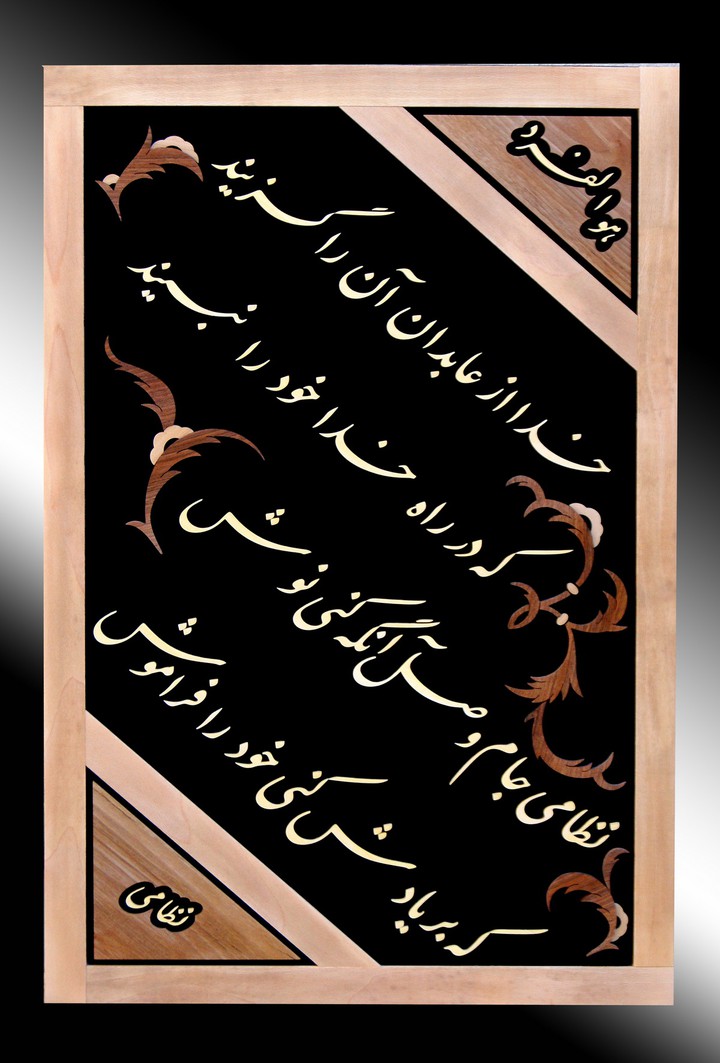 هو الفرد
خدا از عابدان آن را گزیند
که در راه خدا خود را نبیند
نظامی جام وصل آنگه کنی نوش
که بر یادش کنی خود را فراموش
نظامی